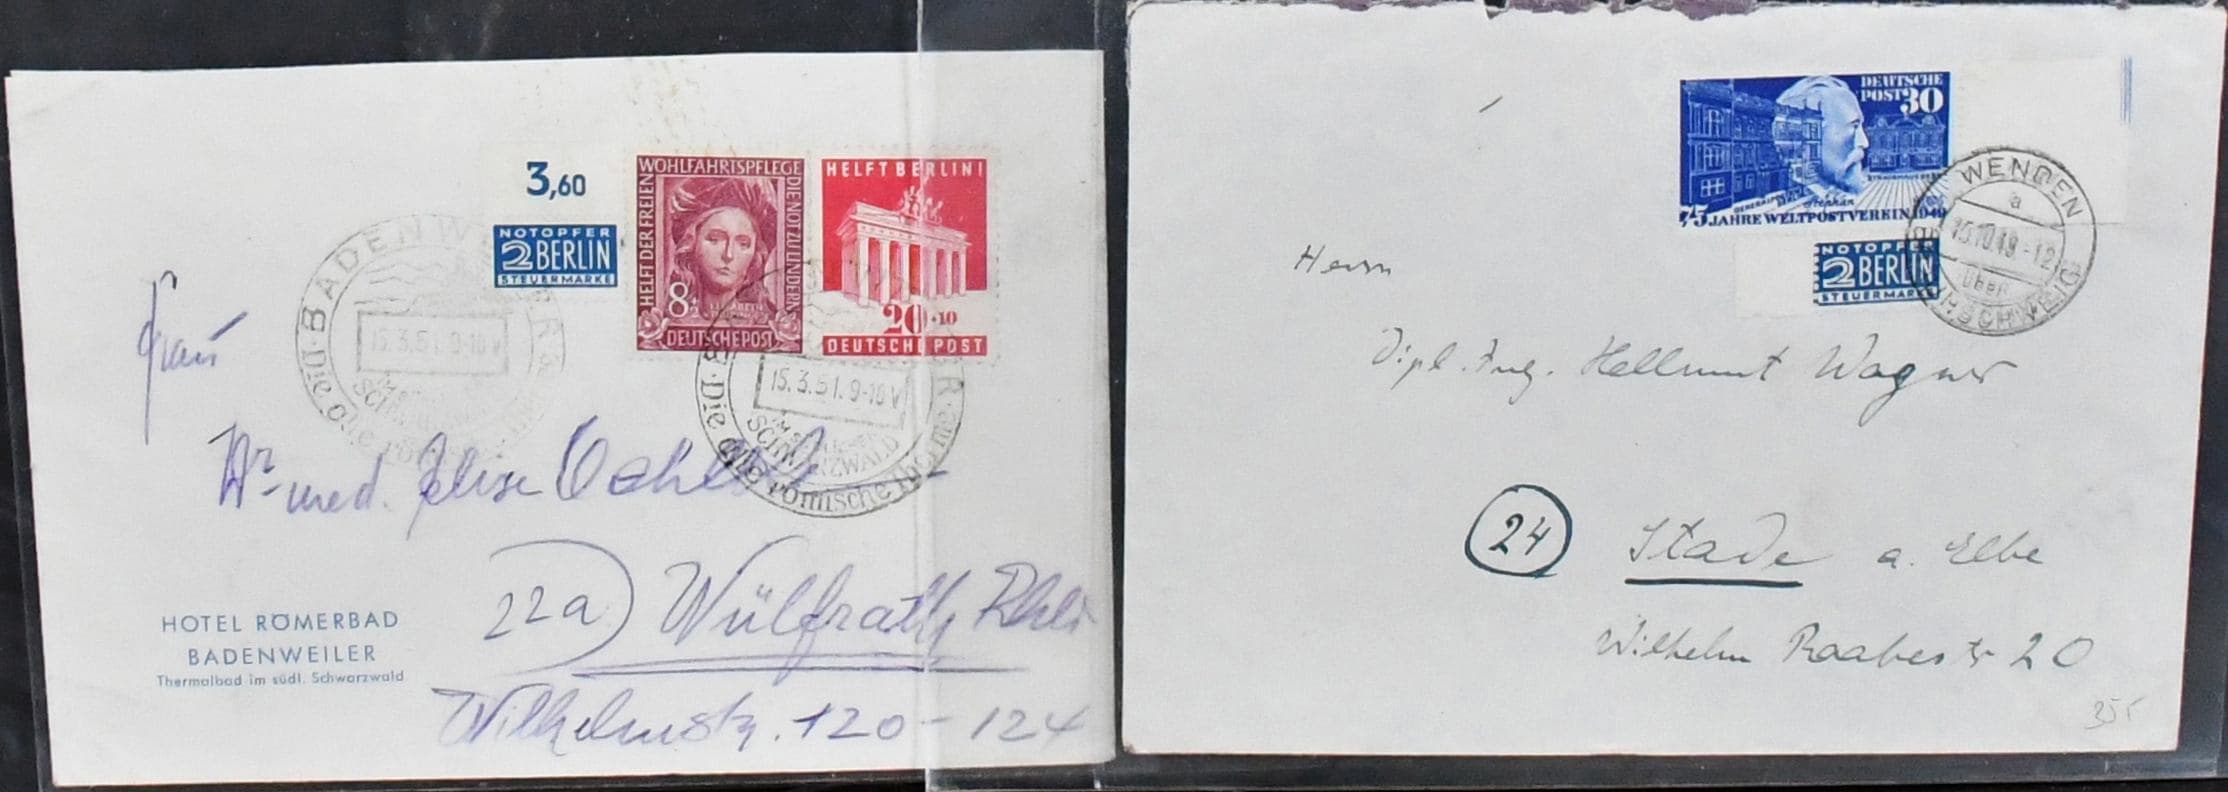 3,60
NOTOPFER
2 BERLIN
STEUERMARKE
WOHLFAHRTSPFLEGE
HELFT DER FREIEN
DIE NOT ZU LINDERN
8
DEUTSCHE POST
HELFT BERLIN!
20+10
DEUTSCHE POST
BADENWEILER
15.3.51.9-10V
IM
SCHWARZWALD
Die alte römische
15.3.51.9-10V
SCHWARZWALD
Die alte römische Therme
Frau
Dr med. Else
22a) Wülfrath, Rhld
Wilhelmstr. 120-124
HOTEL RÖMERBAD
BADENWEILER
Thermalbad im südl. Schwarzwald
DEUTSCHE
POST 30
Stephan
75 JAHRE WELTPOSTVEREIN 1949
NOTOPFER
2 BERLIN
STEUERMARKE
WENDEN
a
15.10.49-12
über
BRAUNSCHWEIG
Herrn
Dipl. Ing. Hellmut Wagner
24 Stade a. Elbe
Wilhelm Raabestr 20